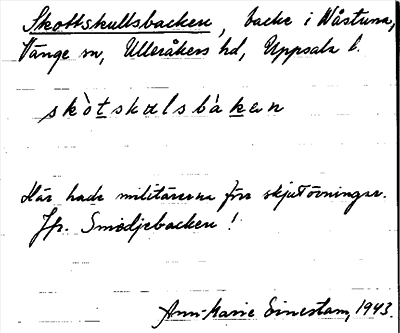 Skottskullsbacken, backe i Wåstuna,
Vänge sn, Ulleråkers hd, Uppsala l.
skòtskulsbàken
Här hade militärerna förr skjutövningar.
Jfr. Smedjebacken!
Ann-Marie Einestam, 1943.